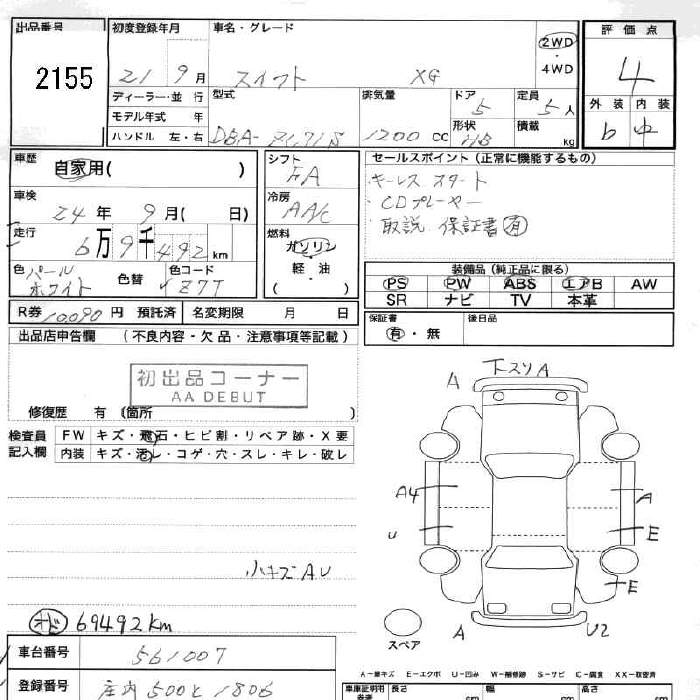 出品番号 2155
初度登録年月 21 9月
車名・グレード スイフト XG
2WD・4WD
評価点 4
外装 b 内装 中
ディーラー・並行
モデル年式 年
ハンドル 左・右
型式 DBA-ZC71S
排気量 1200 cc
ドア 5
形状 HB
定員 5人
積載 kg
車歴 自家用( )
車検 24年 9月( 日)
走行 6万9千492km
色 パールホワイト
色替
色コード Z7T
シフト FA
冷房 AA/C
燃料 ガソリン・軽油 ( )
セールスポイント(正常に機能するもの)
・キーレス スタート
・CDプレーヤー
・取説 保証書 有
装備品(純正品に限る)
PS PW ABS エアB AW
SR ナビ TV 本革
R券 10,090 円 預託済
名変期限 月 日
保証書 有・無
後日品
出品店申告欄 (不良内容・欠品・注意事項等記載)
初出品コーナー
AA DEBUT
修復歴 有 (箇所 )
検査員記入欄
FW キズ・飛石・ヒビ割・リペア跡・X要
内装 キズ・汚レ・コゲ・穴・スレ・キレ・破レ
A 下スリA
A4 A
U E
E
A U2
スペア
小キズAU
オド 69492km
車台番号 561007
登録番号 庄内500と1806
A-線キズ E-エクボ U-凹み W-補修跡 S-サビ C-腐食 XX-取替済
車庫証明用参考
長さ cm
幅 cm
高さ cm